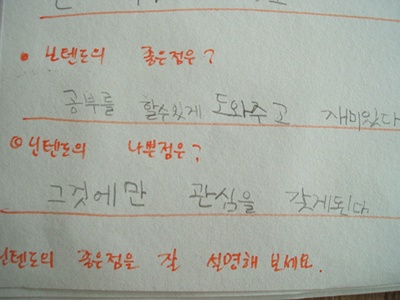 닌텐도의 좋은점은?
공부를 할수있게 도와주고 재미있다
닌텐도의 나쁜점은?
그것에만 관심을 갖게된다
닌텐도의 좋은점을 잘 설명해 보세요.